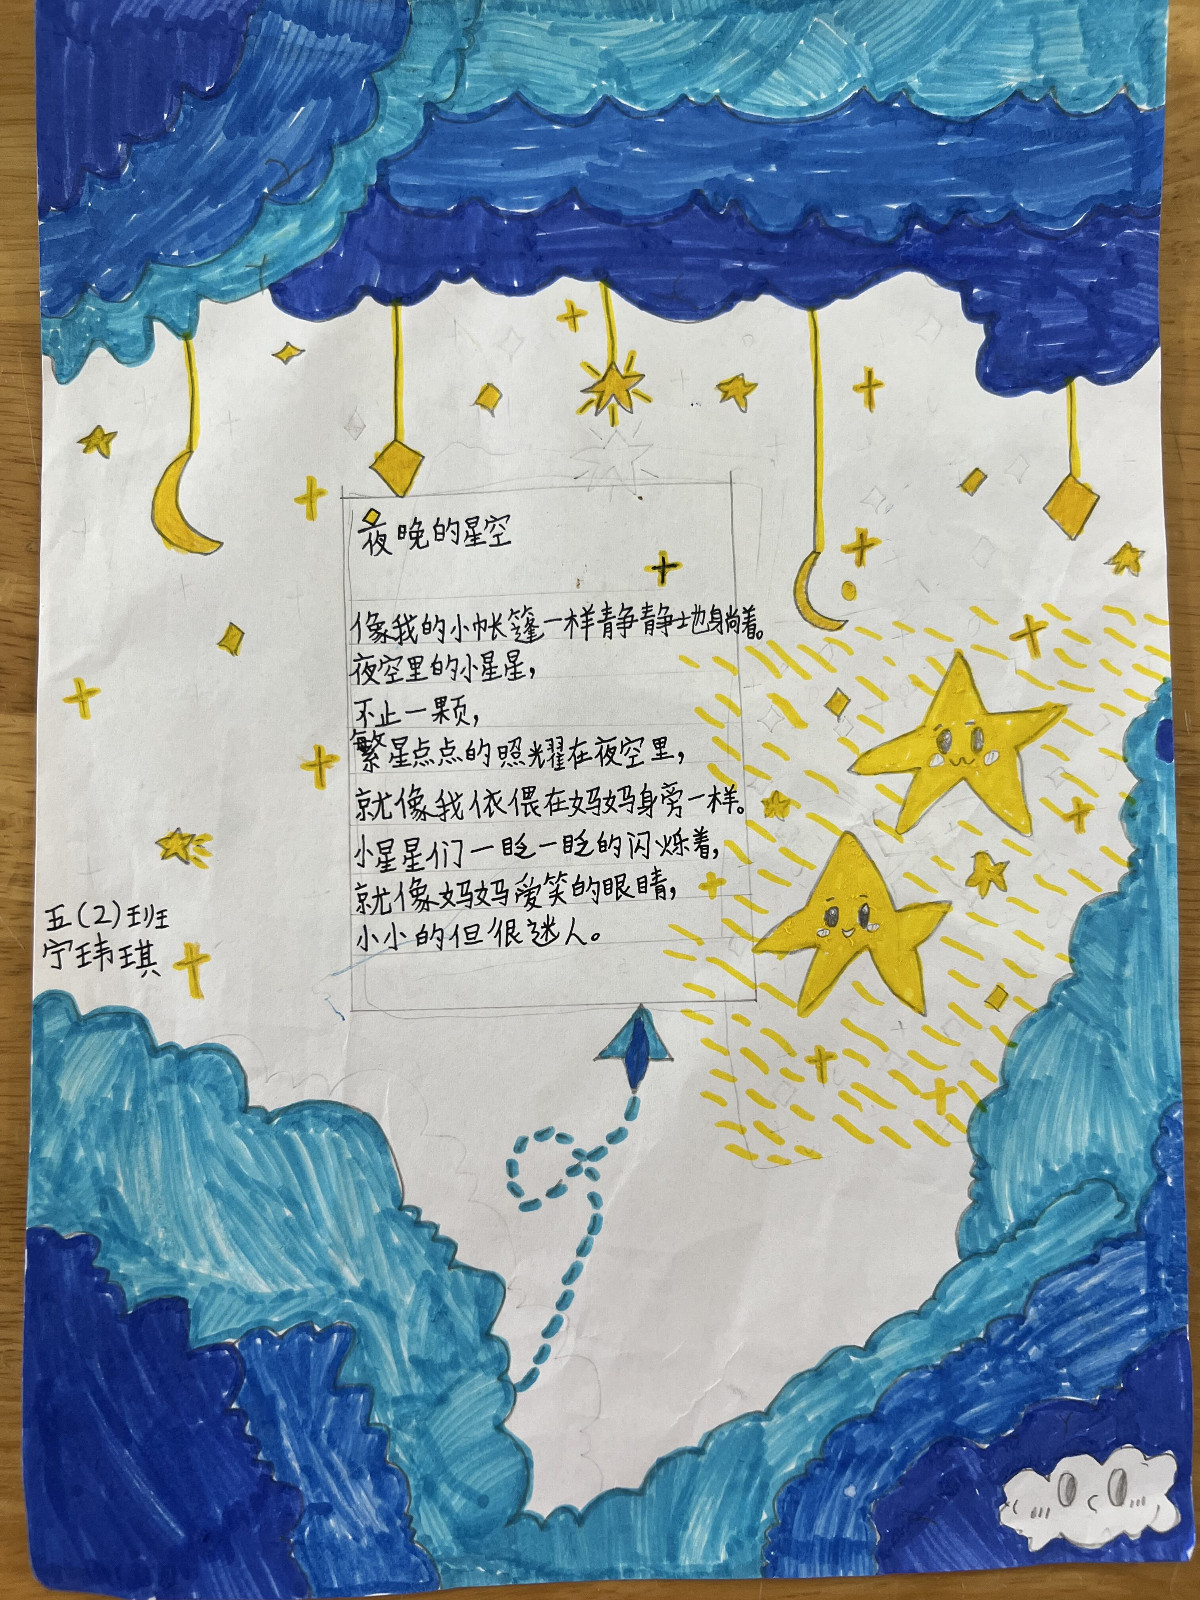 夜晚的星空
像我的小帐篷一样静静地躺着。
夜空里的小星星，
不止一颗，
繁星点点的照耀在夜空里，
就像我依偎在妈妈身旁一样。
小星星们一眨一眨的闪烁着，
就像妈妈爱笑的眼睛，
小小的但很迷人。
五(2)班
宁玮琪